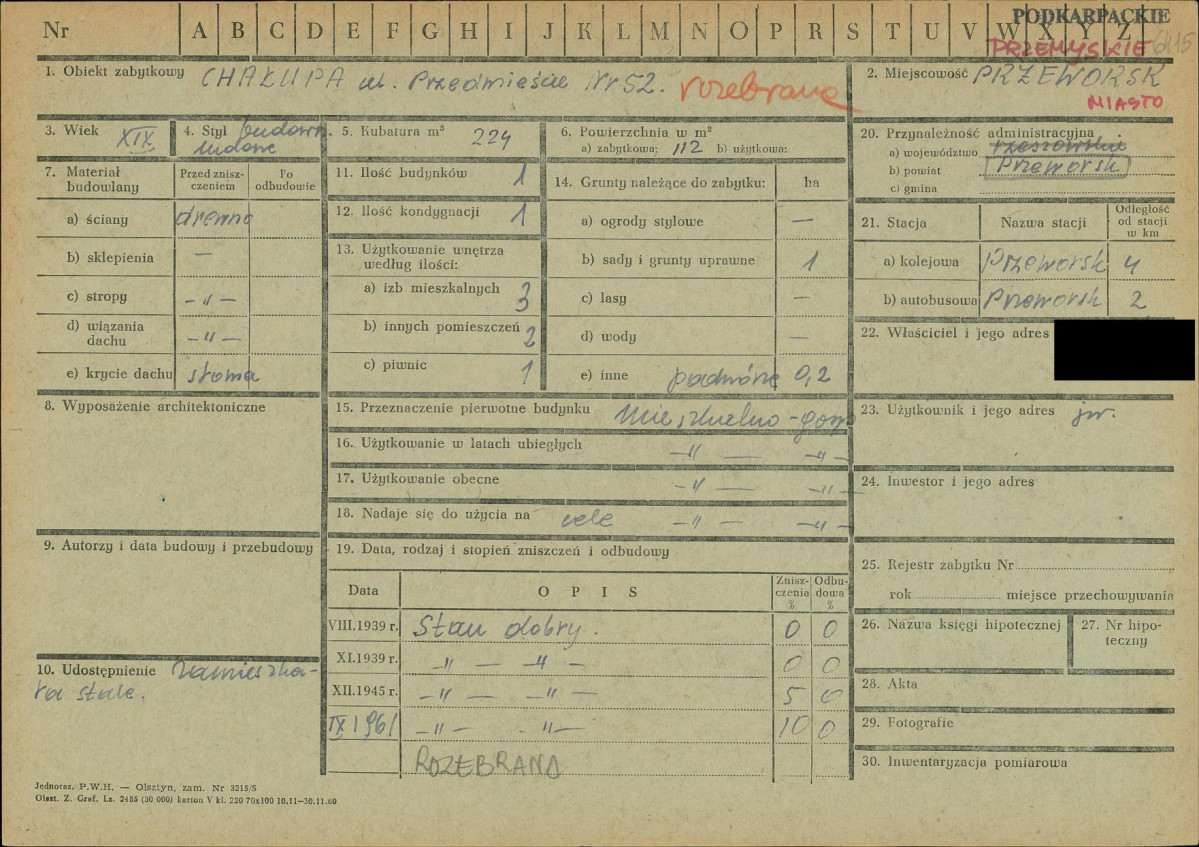 Nr A B C D E F G H I J K L M N O P R S T U V W X Y Z
PODKARPACKIE
PRZEMYSKIE
1. Obiekt zabytkowy CHAŁUPA ul. Przedmieście Nr 52. rozebrana
2. Miejscowość PRZEWORSK
MIASTO
3. Wiek XIX
4. Styl budown.
ludowe
5. Kubatura m³ 224
6. Powierzchnia w m²
a) zabytkowa: 112 b) użytkowa:
7. Materiał budowlany
Przed zniszczeniem
Po odbudowie
a) ściany drewno
b) sklepienia —
c) stropy —„—
d) wiązania dachu —„—
e) krycie dachu słoma
8. Wyposażenie architektoniczne
9. Autorzy i data budowy i przebudowy
10. Udostępnienie zamieszka-
ła stale.
11. Ilość budynków 1
12. Ilość kondygnacji 1
13. Użytkowanie wnętrza
według ilości:
a) izb mieszkalnych 3
b) innych pomieszczeń 2
c) piwnic 1
14. Grunty należące do zabytku: ha
a) ogrody stylowe —
b) sady i grunty uprawne 1
c) lasy —
d) wody —
e) inne podwórze 0,2
15. Przeznaczenie pierwotne budynku mieszkalno-gosp
16. Użytkowanie w latach ubiegłych —„— —„—
17. Użytkowanie obecne —„— —„—
18. Nadaje się do użycia na cele —„— —„—
19. Data, rodzaj i stopień zniszczeń i odbudowy
Data O P I S Zniszczenia % Odbudowa %
VIII.1939 r. Stan dobry. 0 0
XI.1939 r. —„— —„— 0 0
XII.1945 r. —„— —„— 5 0
IX 1961 —„— —„— 10 0
ROZEBRANO
20. Przynależność administracyjna
a) województwo rzeszowskie
b) powiat Przeworsk
c) gmina
21. Stacja Nazwa stacji Odległość od stacji w km
a) kolejowa Przeworsk 4
b) autobusowa Przeworsk 2
22. Właściciel i jego adres
23. Użytkownik i jego adres jw.
24. Inwestor i jego adres
25. Rejestr zabytku Nr
rok miejsce przechowywania
26. Nazwa księgi hipotecznej
27. Nr hipoteczny
28. Akta
29. Fotografie
30. Inwentaryzacja pomiarowa
Jednoraz. P.W.H. — Olsztyn, zam. Nr 3215/S
Olszt. Z. Graf. Lz. 2485 (30 000) karton V kl. 220 70x100 10.11—30.11.60